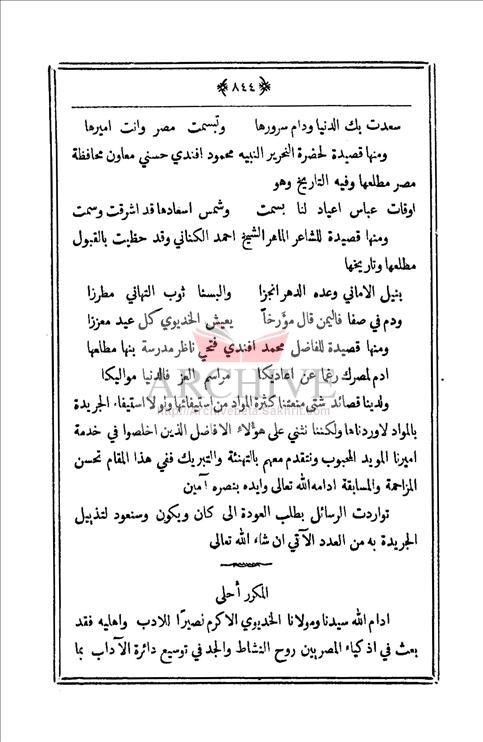 ﴿٨٤٤﴾
سعدت بك الدنيا ودام سرورها وتبسمت مصر وانت اميرها
ومنها قصيدة لحضرة النحرير النبيه محمود افندي حسني معاون محافظة
مصر مطلعها وفيه التاريخ وهو
اوقات عباس اعياد لنا بسمت وشمس اسعادها قد اشرقت وسمت
ومنها قصيدة للشاعر الماهر الشيخ احمد الكناني وقد حظيت بالقبول
مطلعها وتاريخها
بنيل الاماني وعده الدهر انجزا والبسنا ثوب التهاني مطرزا
ودم في صفا فاليمن قال مؤرخاً يعيش الخديوي كل عيد معززا
ومنها قصيدة للفاضل محمد افندي فتحي ناظر مدرسة بنها مطلعها
ادم لمصرك رغما عن اعاديكا مراسم العز فالدنيا مواليكا
ARCHIVE
http://Archivebeta.Sakhrit.com
ولدينا قصائد شتى منعتنا كثرة المواد من استيفائها ولولا استيفاء الجريدة
بالمواد لاوردناها ولكننا نثني على هؤلاء الافاضل الذين اخلصوا في خدمة
اميرنا المويد المحبوب ونتقدم معهم بالتهنئة والتبريك ففي هذا المقام تحسن
المزاحمة والمسابقة ادامه الله تعالى وايده بنصره آمين
تواردت الرسائل بطلب العودة الى كان ويكون وسنعود لتذييل
الجريدة به من العدد الآتي ان شاء الله تعالى
المكرر أحلى
ادام الله سيدنا ومولانا الخديوي الاكرم نصيرًا للادب واهليه فقد
بعث في اذكياء المصريين روح النشاط والجد في توسيع دائرة الآداب بما